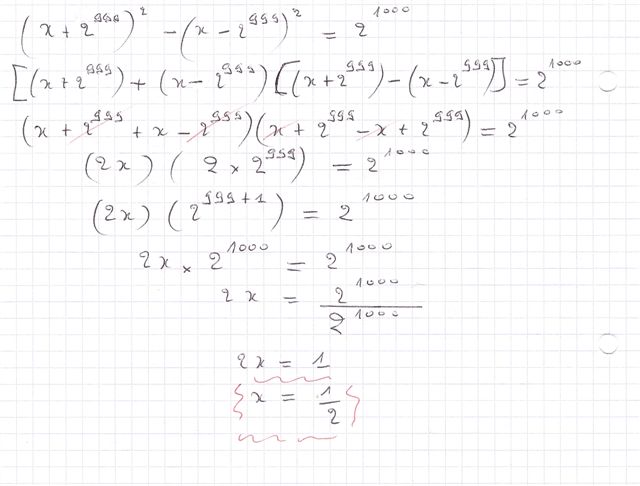 (x + 2^999)^2 - (x - 2^999)^2 = 2^1000
[(x + 2^999) + (x - 2^999)[(x + 2^999) - (x - 2^999)] = 2^1000
(x + 2^999 + x - 2^999)(x + 2^999 - x + 2^999) = 2^1000
(2x) (2 × 2^999) = 2^1000
(2x) (2^(999+1)) = 2^1000
2x × 2^1000 = 2^1000
2x = 2^1000 / 2^1000
2x = 1
x = 1/2